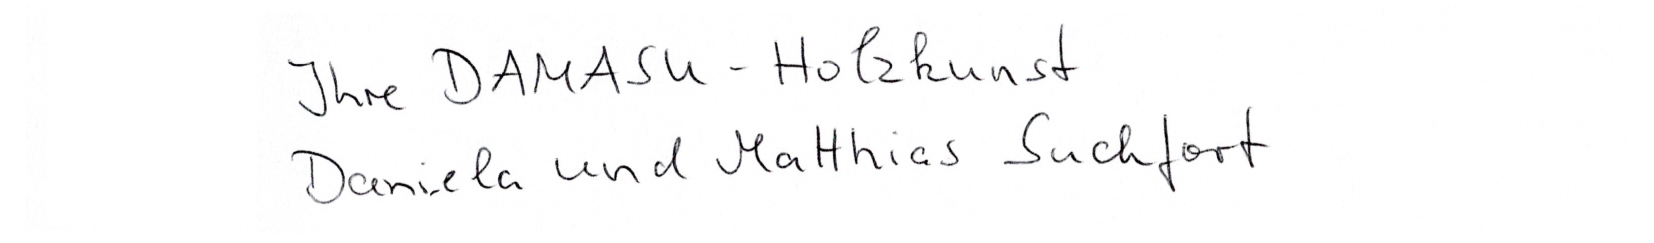 Ihre DAMASU - Holzkunst
Daniela und Matthias Suchfort